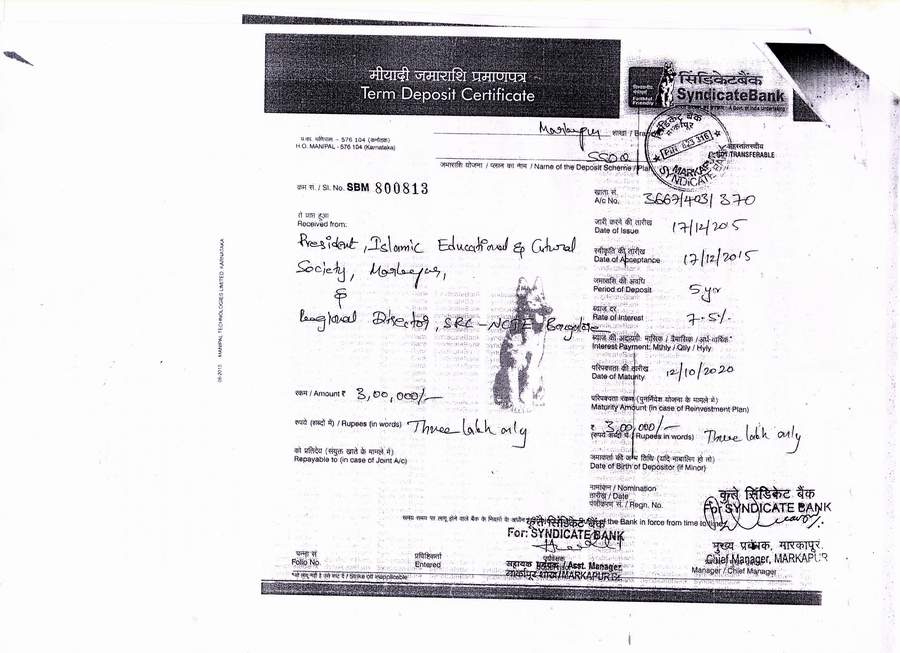 मीयादी जमाराशि प्रमाणपत्र
Term Deposit Certificate
सिंडिकेटबैंक
SyndicateBank
Faithful Friendly
प्र.का. मणिपाल - 576 104 (कर्नाटक)
H.O. MANIPAL - 576 104 (Karnataka)
Markapur शाखा /
जमाराशि योजना / प्लान का नाम / Name of the Deposit Scheme / Plan
TRANSFERABLE
सिंडिकेट बैंक
मारकापुर
PIN 523 316
MARKAPUR
SYNDICATE BANK
क्रम सं. / Sl. No. SBM 800813
खाता सं.
A/c No. 3667/403/370
से प्राप्त हुआ
Received from:
President, Islamic Educational & Cultural
Society, Markapur,
&
Regional Director, SRC-NCTE Bangalore
जारी करने की तारीख
Date of Issue 17/12/2015
स्वीकृति की तारीख
Date of Acceptance 17/12/2015
जमाराशि की अवधि
Period of Deposit 5 yr
ब्याज दर
Rate of Interest 7.5%
ब्याज की अदायगी: मासिक / त्रैमासिक / अर्ध-वार्षिक*
Interest Payment: Mthly / Qtly / Hyly
परिपक्वता की तारीख
Date of Maturity 12/10/2020
रकम / Amount ₹ 3,00,000/-
परिपक्वता रकम (पुनर्निवेश योजना के मामले में)
Maturity Amount (in case of Reinvestment Plan)
₹ 3,00,000/-
रुपये (शब्दों में) / Rupees (in words) Three lakh only
(रुपये शब्दों में) / Rupees in words) Three lakh only
को प्रतिदेय (संयुक्त खाते के मामले में)
Repayable to (in case of Joint A/c)
जमाकर्ता की जन्म तिथि (यदि नाबालिग हो तो)
Date of Birth of Depositor (if Minor)
नामांकन / Nomination
तारीख / Date
पंजीकरण सं. / Regn. No.
कृते सिंडिकेट बैंक
For SYNDICATE BANK
समय समय पर लागू होने वाले बैंक के नियमों के अधीन
of the Bank in force from time to time
कृते सिंडिकेट बैंक
For: SYNDICATE BANK
मुख्य प्रबंधक, मारकापुर
Chief Manager, MARKAPUR
Manager / Chief Manager
पन्ना सं
Folio No.
प्रविष्टिकर्ता
Entered
सहायक प्रबंधक / Asst. Manager
मारकापुर शाखा/MARKAPUR Br.
Strike off inapplicable
09-2013 MANIPAL TECHNOLOGIES LIMITED KARNATAKA